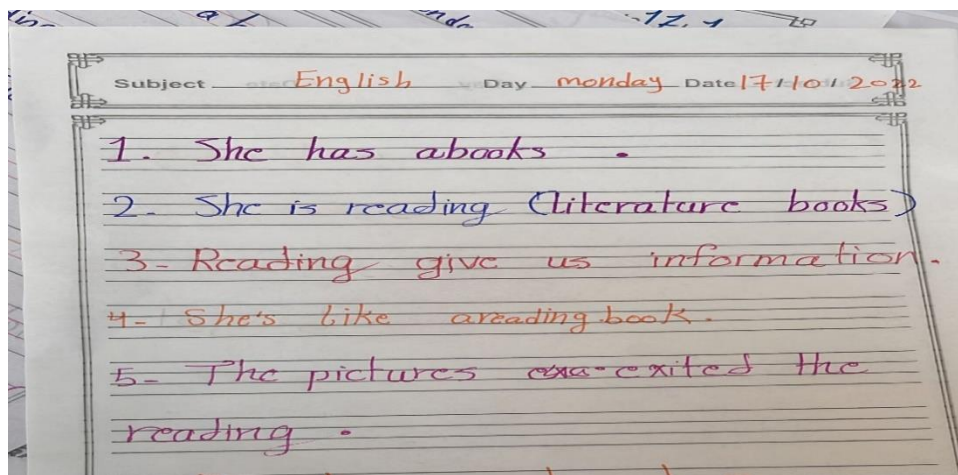 Subject English Day monday Date 17/10/2022
1. She has abooks .
2- She is reading (literature books)
3- Reading give us information.
4- She's like areading book.
5- The pictures exited the
reading .